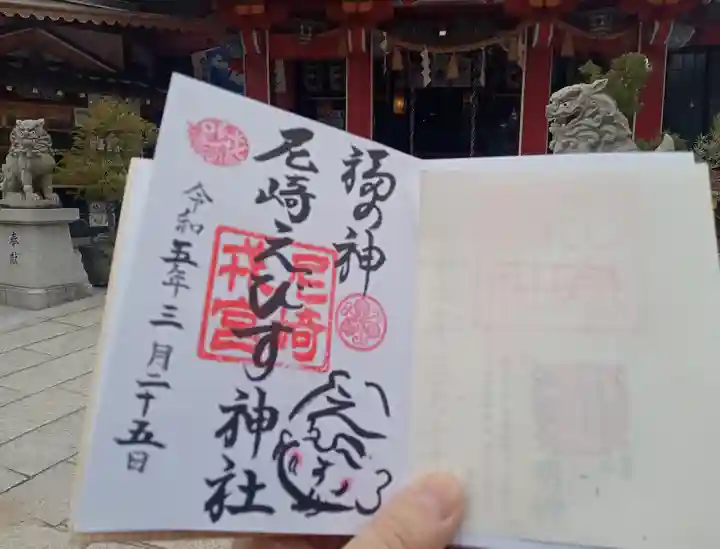 福の神
尼崎えびす神社
尼崎
戎宮
令和五年三月二十五日
奉献